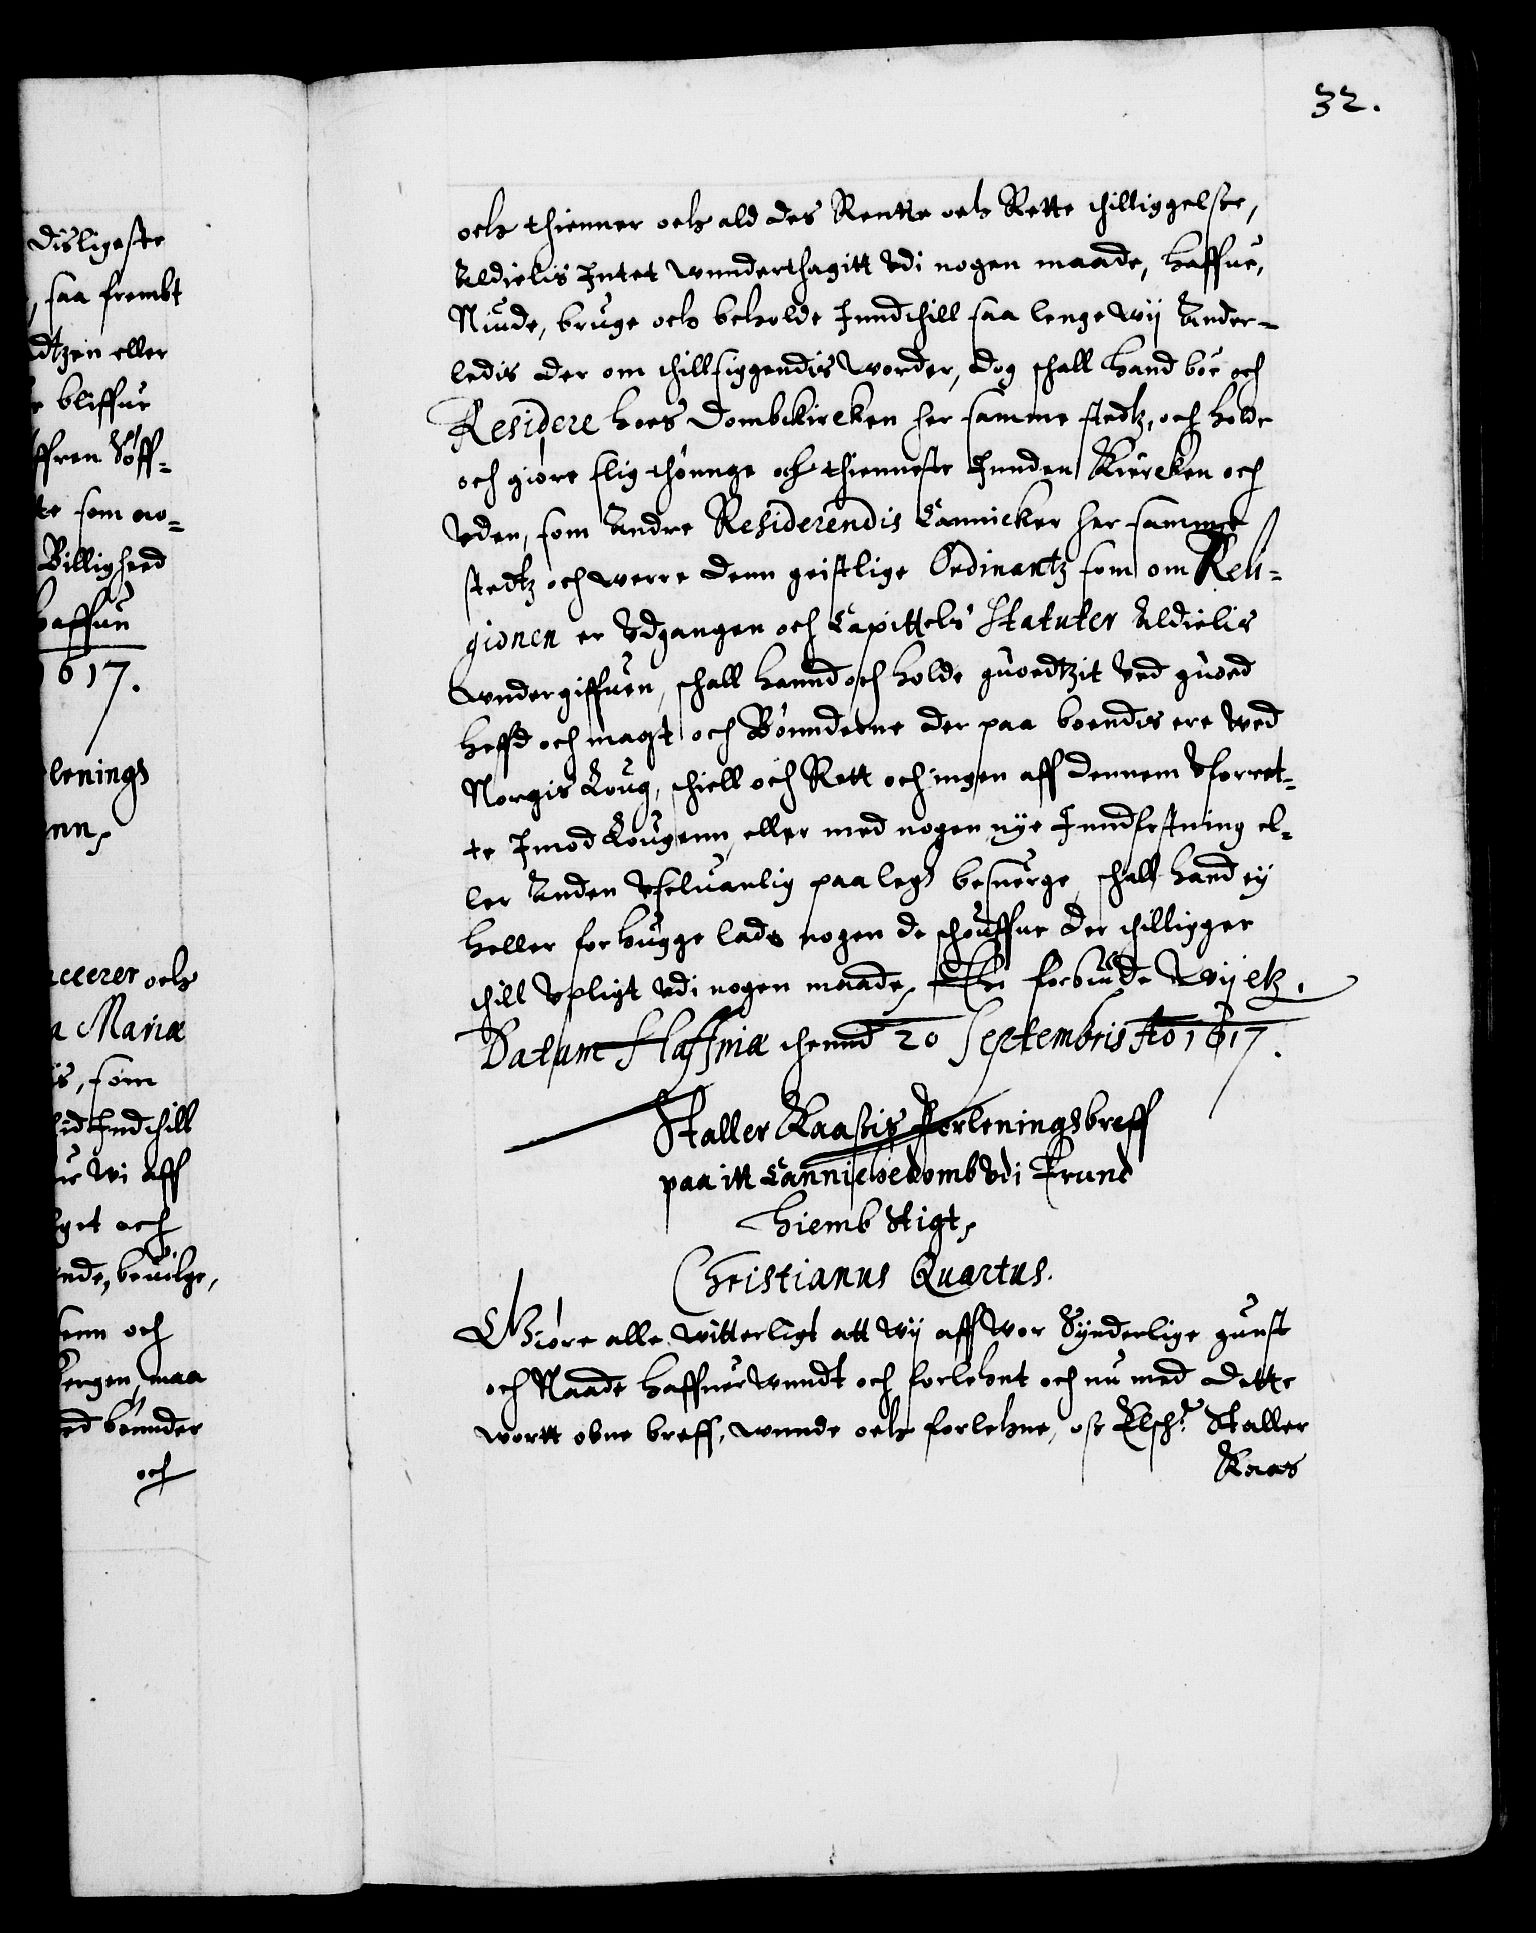 32.
disligeste
saa frembt
dtzen eller
bliffue
ffren Søff-
te som no-
Billigheed
haffuu
1617.
lenings
nn,
och
a Mariæ
is, som
Indthill
Wi aff
get och
nde, beuilge,
senn och
maa
bøunder
och
och thienner och ald des Rentte och Rette thilliggelsse,
Aldielis Intet wunderthagitt Udi nogen maade, haffue,
Niude, bruge och beholde Inndthill saa lenge wij Ander-
ledis der om thillsiggendis worder, dog schall hand boe och
Residere hoes Dombkircken her samme stedtz, och holde
och giøre slig thiunge och thienneste Innden Kiercken och
Uden, som Andre Residerendis Cannicker her samme
stedtz och werre denn geistlige Ordinantz som om Reli-
gionen er Udgangen och Capittels Statuter Aldielis
wndergiffuen, schall hannd och holde guodtzit Ved guod
heffd och magt och Bønnderne der paa boendis ere Wed
Norgis Loug, schiell och Rett och ingen aff dennem Uforret-
te Imod Lougenn eller med nogen nye Inndfestning el-
ler Anden Useluanlig paaleg besuerge, schall hand ej
heller forhugge lade nogen de schouffue der thilligger
thill Upligt Udi nogen maade, Thi forbiude Wij etz.
Datum Haffniæ thennd 20 Septembris Ao 1617.
Staller Kaasis Forleningsbreff
paa itt Cannickedomb Udi Trund
hiemb Stigt,
Christianus Quartus.
Giøre alle witterligt att wij aff wor Synderlige gunst
och Naade haffuer wundt och forlehnt och nu med dette
wortt obne breff, wunde och forlehne, oss Elsch: Staller
Kaas